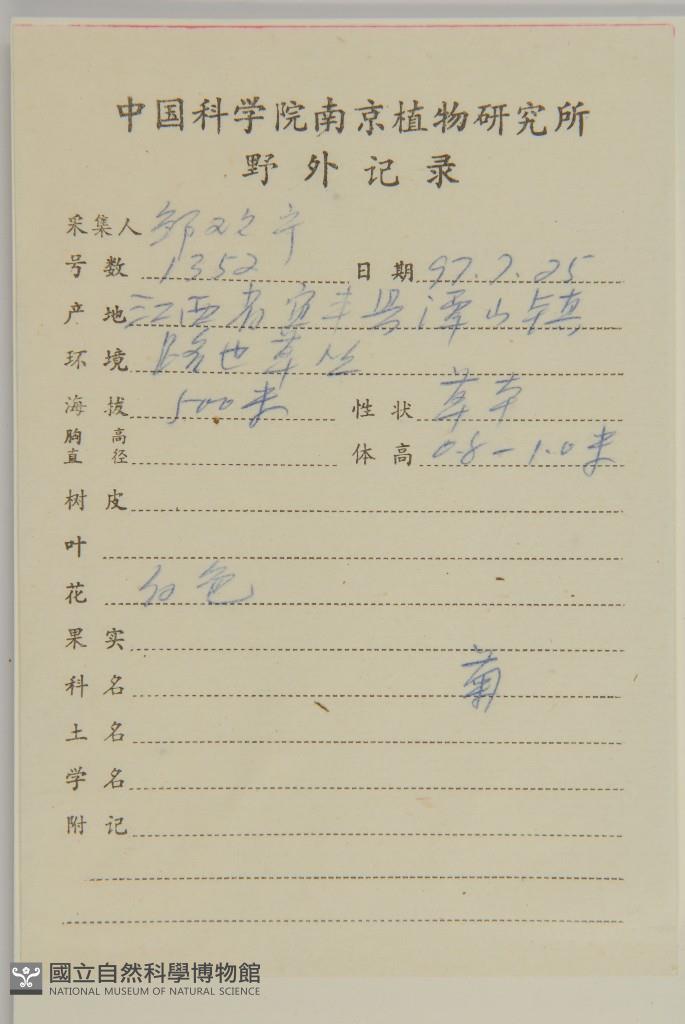 中国科学院南京植物研究所
野外记录
采集人
号数 1352 日期 97.7.25
产地 江西省宜丰县潭山镇
环境 路边草丛
海拔 500米 性状 草本
胸高直径 体高 0.8-1.0米
树皮
叶
花 红色
果实
科名 菊
土名
学名
附记
國立自然科學博物館
NATIONAL MUSEUM OF NATURAL SCIENCE